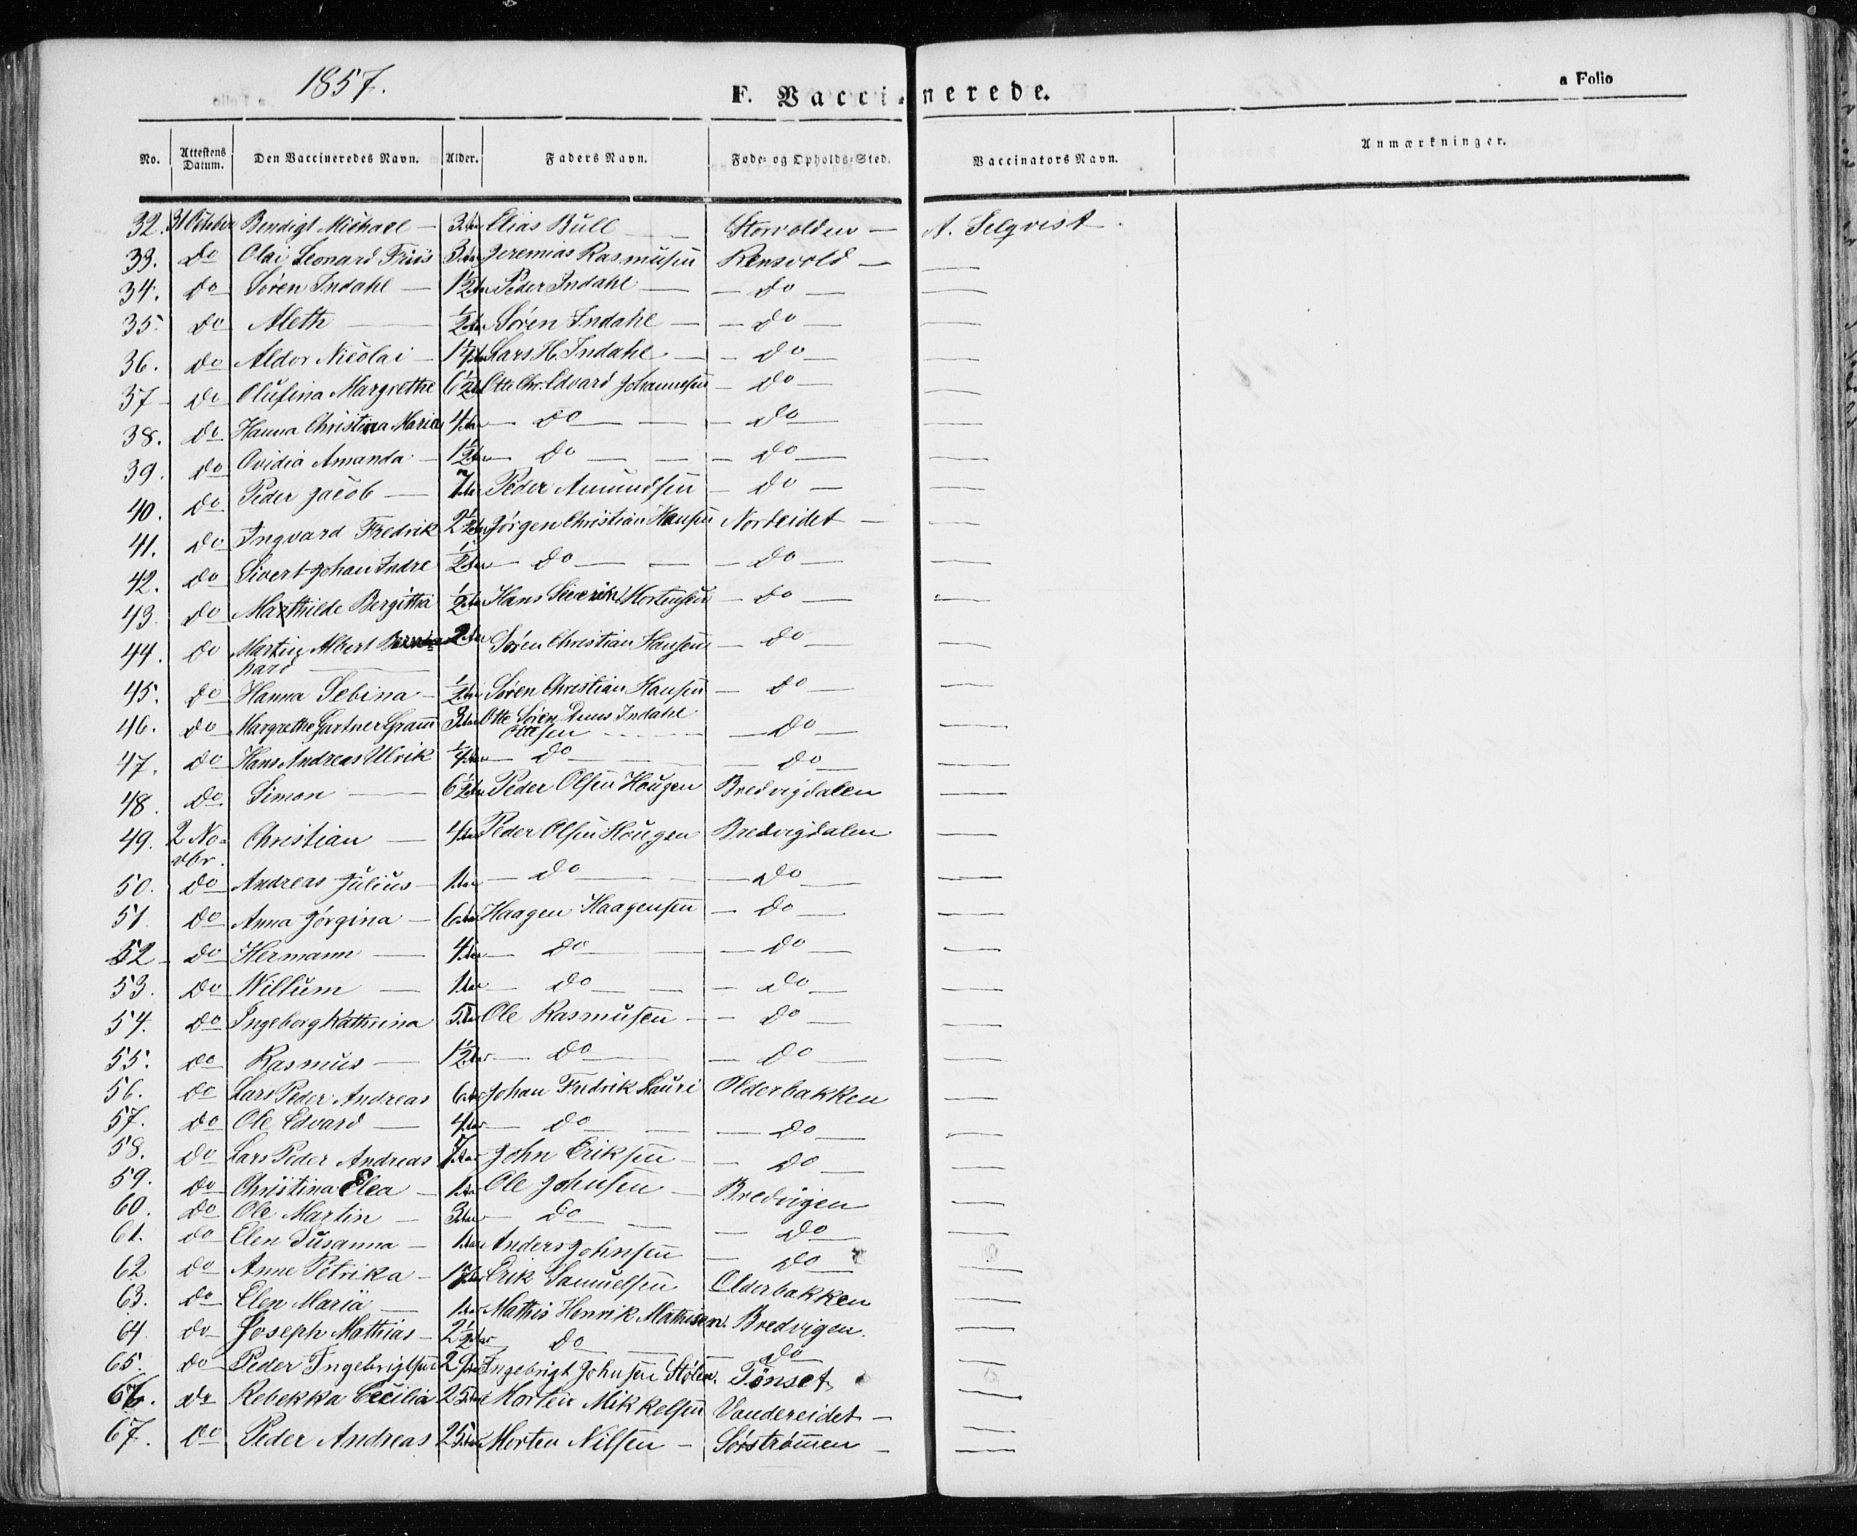 1857.
F. Vaccinerede.
a Folio
No. Attestens Datum. Den Vaccineredes Navn. Alder. Faders Navn. Føde- og Opholds-Sted. Vaccinators Navn. Anmærkninger.
32. 31 October Bendigt Michael — 3 Elias Bull Storvolden — A. Selqvist.
33. do Olai Leonard Friis 3 Jeremias Rasmusen Rensvold — —
34. do Søren Indahl — 1½ Peder Indahl — — do — —
35. do Aleth — ½ Søren Indahl — — do — —
36. do Aldor Nicolai — Lars H. Indahl — — do — —
37 do Olufina Margrethe 6½ Otto Chr. Edvard Johannesen — do — —
38. do Hanna Christina Maria 4 — do — — — do — —
39. do Ovidia Amanda — 1½ — do — — — do — —
40. do Peder Jacob — 7 Peder Amundsen — do — —
41. do Ingvard Fredrik 2½ Jørgen Christian Hansen Nordeidet — —
42. do Sivert Johan Indre ½ — do — — — do — —
43. do Mathilde Bergitha ½ Hans Severin Mortensen — do — —
44. do Martin Albert Bernhard — 2 Søren Christian Hansen — do — —
45. do Hanna Sebina — ½ Søren Christian Hansen — do — —
46. do Margrethe Gartner Gram 3 Otto Søren Duus Indahl Ottesen — do — —
47. do Hans Andreas Ulrik ¼ — do — — do — —
48. do Simon — 6½ Peder Olsen Hougen Bredvigdalen —
49. 2 Novbr. Christian — 4 Peder Olsen Hougen Bredvigdalen —
50. do Andreas Julius — 1 — do — — do — —
51. do Anna Jørgina — 6 Haagen Haagensen — do — —
52 do Hermann — 4 — do — — do — —
53. do Willum — 1 — do — — — do — —
54. do Ingeborg Kathrina 5 Ole Rasmusen — — do — —
55. do Rasmus — 1½ — do — — do — —
56. do Lars Peder Andreas 6 Johan Fredrik Lauri Olderbakken —
57. do Ole Edvard — 4 — do — — — do — —
58. do Lars Peder Andreas John Eriksen — — do — —
59. do Christina Elea — 1 Ole Johnsen — Bredvigen —
60. do Ole Martin — 3 — do — — — do — —
61. do Elen Susanna — 1 Anders Johnsen — do —
62. do Anne Petrika — Erik Samuelsen Olderbakken —
63. do Elen Maria — 1 Mathis Henrik Mathisen. Bredvigen. —
64. do Joseph Mathias — 2½ — do — — do — —
65. do Peder Ingebrigtsen Ingebrigt Johnsen Stølen. Tønset
66. do Rebekka Cecilia 25 Morten Mikkelsen Vandereidet — —
67. do Peder Andreas 25 Morten Nilsen — Sørstrømmen — —